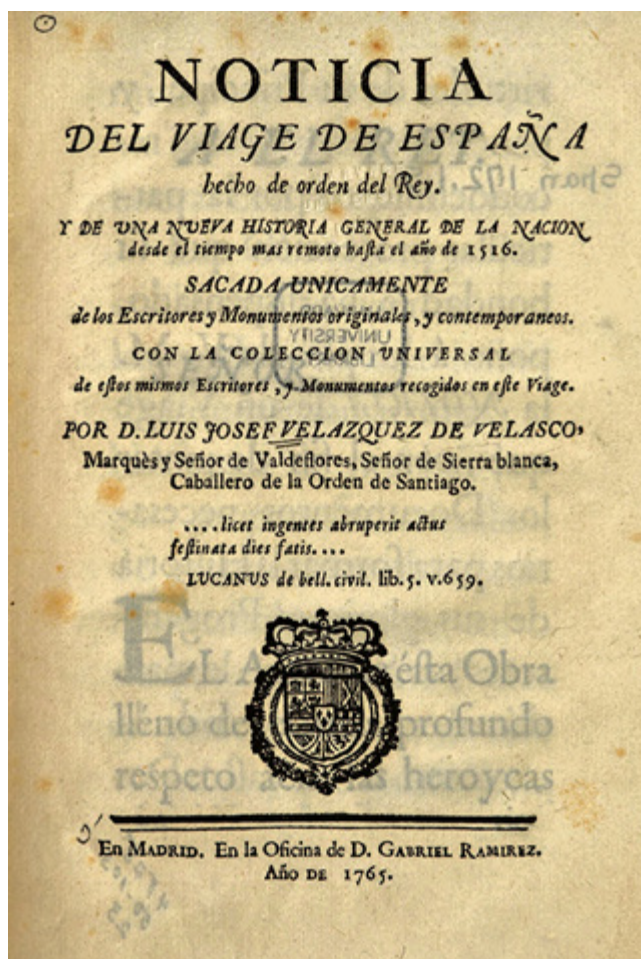 NOTICIA
DEL VIAGE DE ESPAÑA
hecho de orden del Rey.
Y DE UNA NUEVA HISTORIA GENERAL DE LA NACION
desde el tiempo mas remoto hasta el año de 1516.
SACADA UNICAMENTE
de los Escritores y Monumentos originales, y contemporaneos.
CON LA COLECCION UNIVERSAL
de estos mismos Escritores, y Monumentos recogidos en este Viage.
POR D. LUIS JOSEF VELAZQUEZ DE VELASCO,
Marquès y Señor de Valdeflores, Señor de Sierra blanca,
Caballero de la Orden de Santiago.
....licet ingentes abruperit actus
festinata dies fatis....
LUCANUS de bell. civil. lib. 5. v. 659.
En MADRID. En la Oficina de D. GABRIEL RAMIREZ.
Año DE 1765.